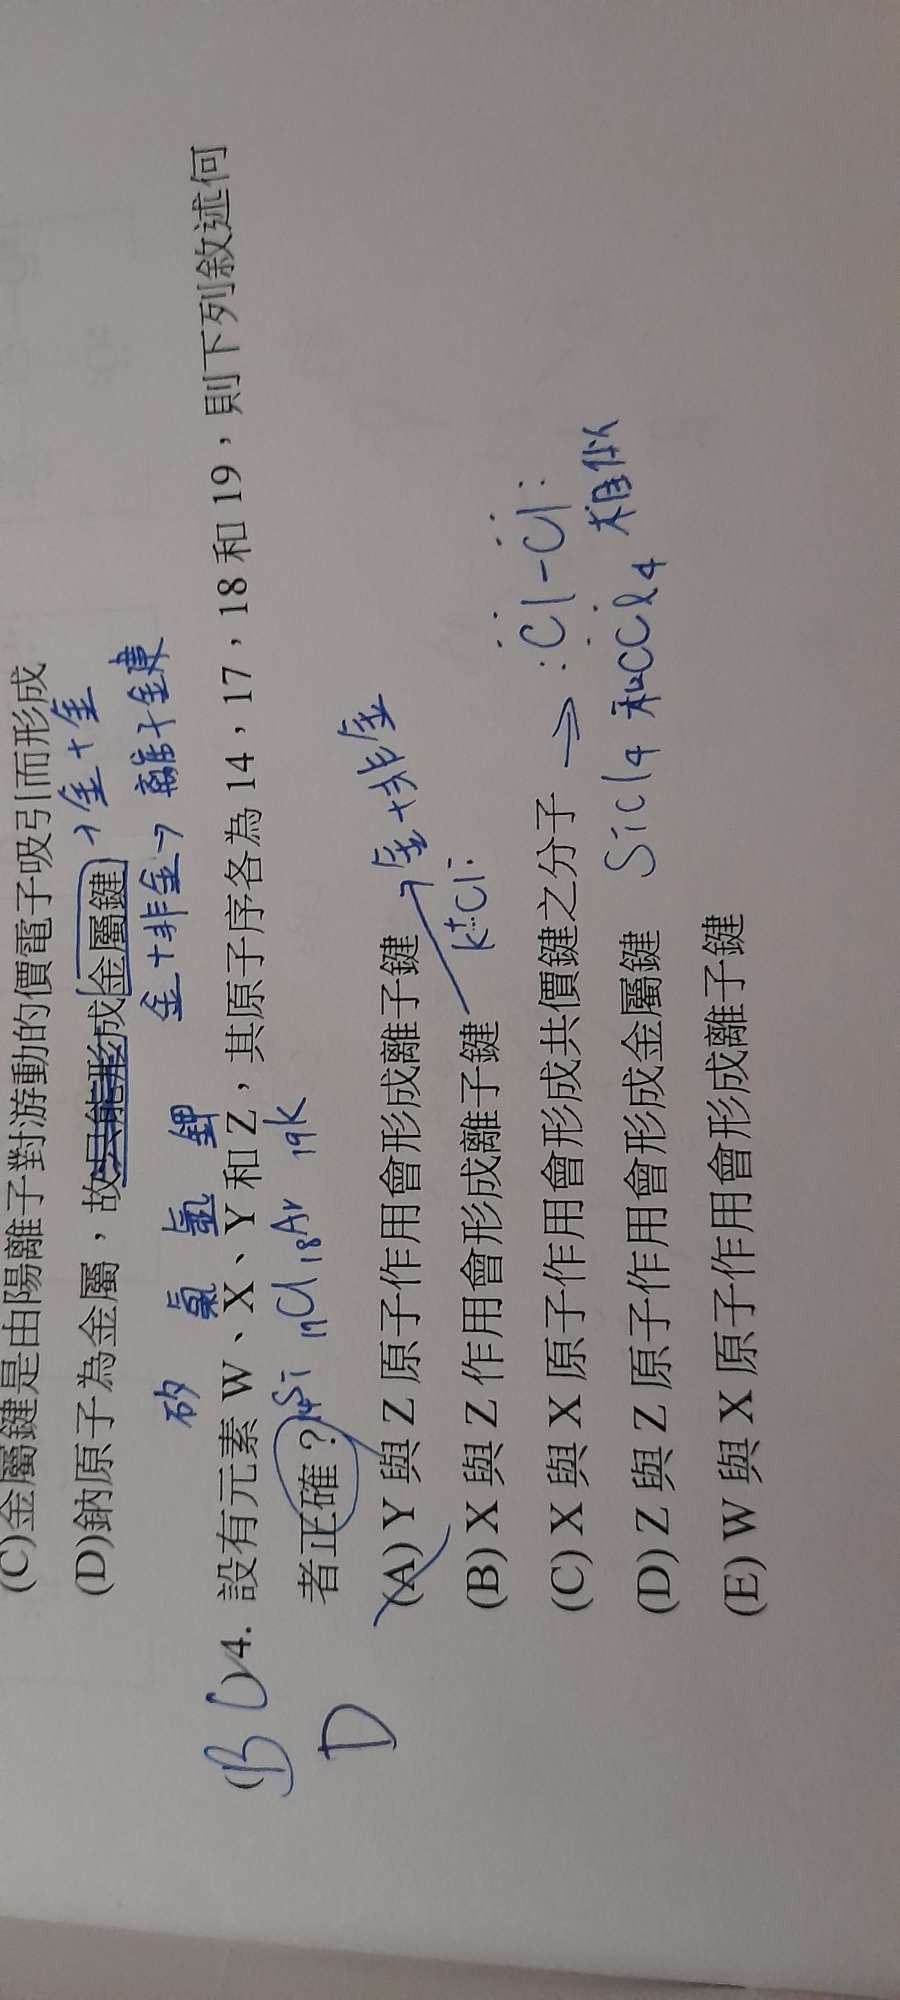 (C)金屬鍵是由陽離子對游動的價電子吸引而形成
(D)鈉原子為金屬，故只能形成金屬鍵 → 金+金
金+非金→離子鍵
矽 氯 氬 鉀
(BCD)4. 設有元素 W、X、Y 和 Z，其原子序各為 14，17，18 和 19，則下列敘述何
者正確？ 14Si 17Cl 18Ar 19K
(A) Y 與 Z 原子作用會形成離子鍵 → 金+非金
(B) X 與 Z 作用會形成離子鍵 K+Cl-
(C) X 與 X 原子作用會形成共價鍵之分子 → :Cl-Cl:
(D) Z 與 Z 原子作用會形成金屬鍵 SiCl4 和CCl4 相似
(E) W 與 X 原子作用會形成離子鍵